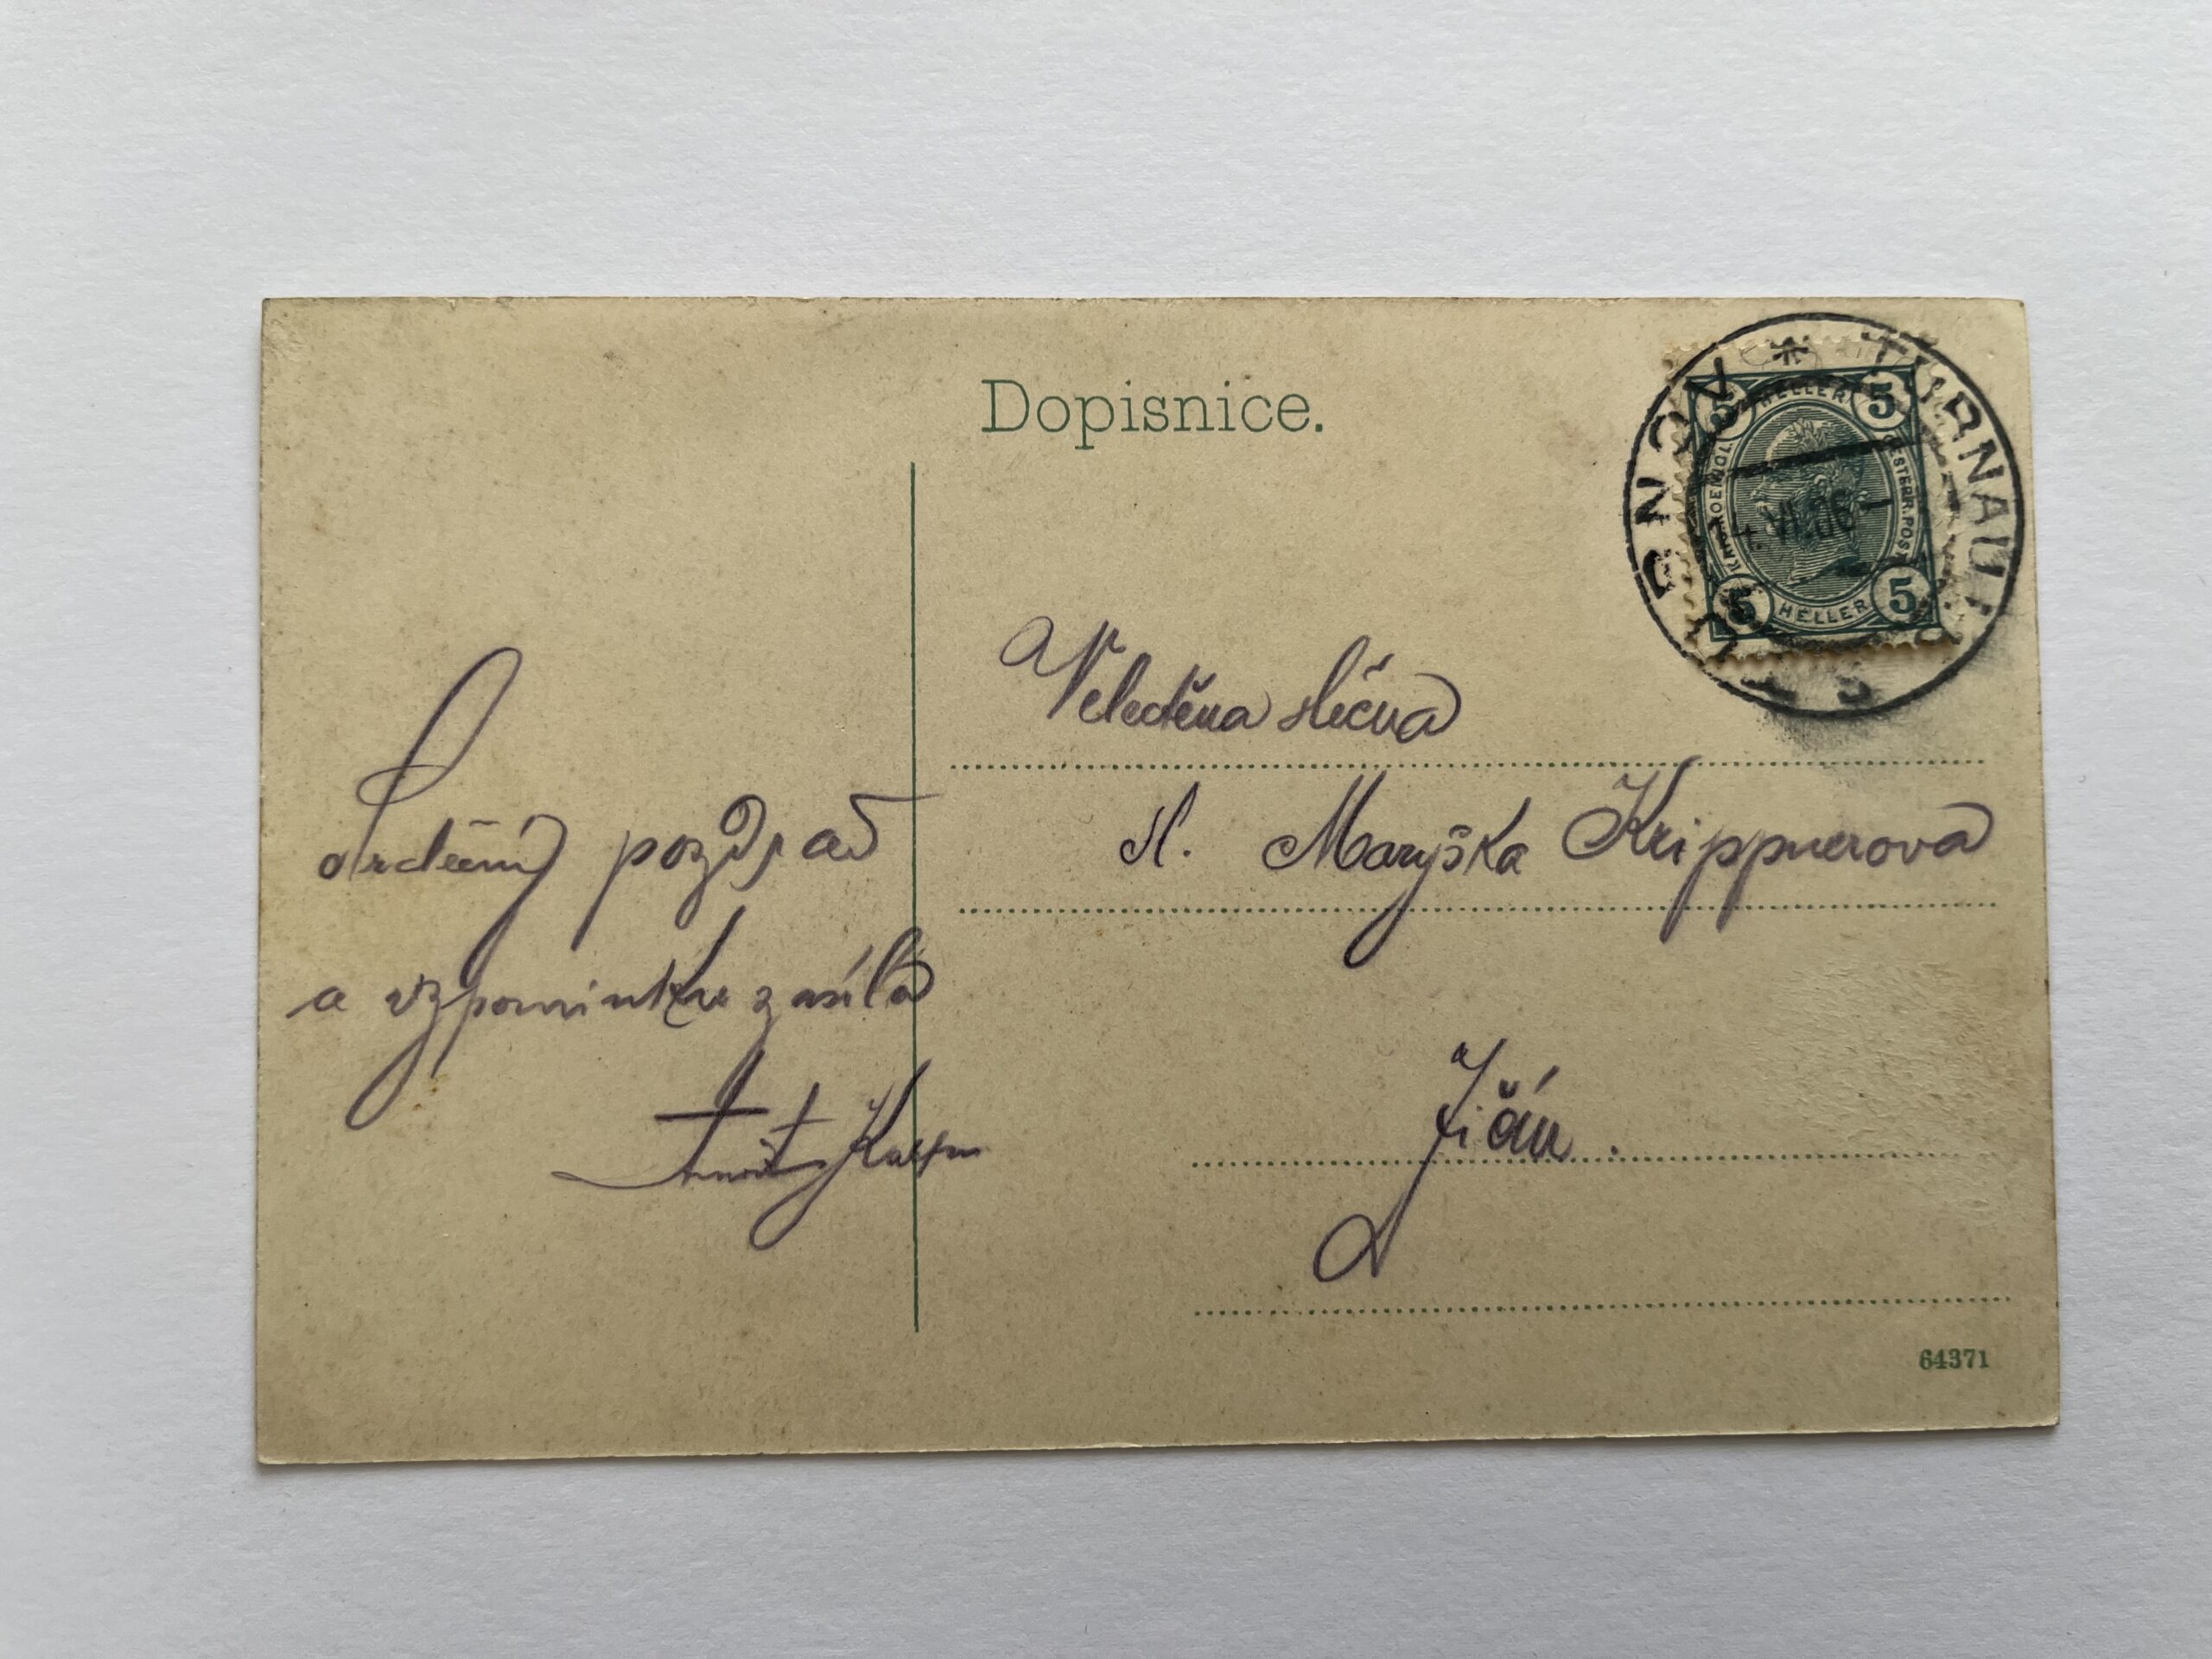 Dopisnice.
TURNOV * TURNAU
4.VI.06
5 HELLER 5
KAIS. KOENIGL. OESTERR. POST
5 HELLER 5
Velectěna slečna
sl. Maryška Krippnerova
Jičín.
Srdečný pozdrav
a vzpomínku zasílá
64371